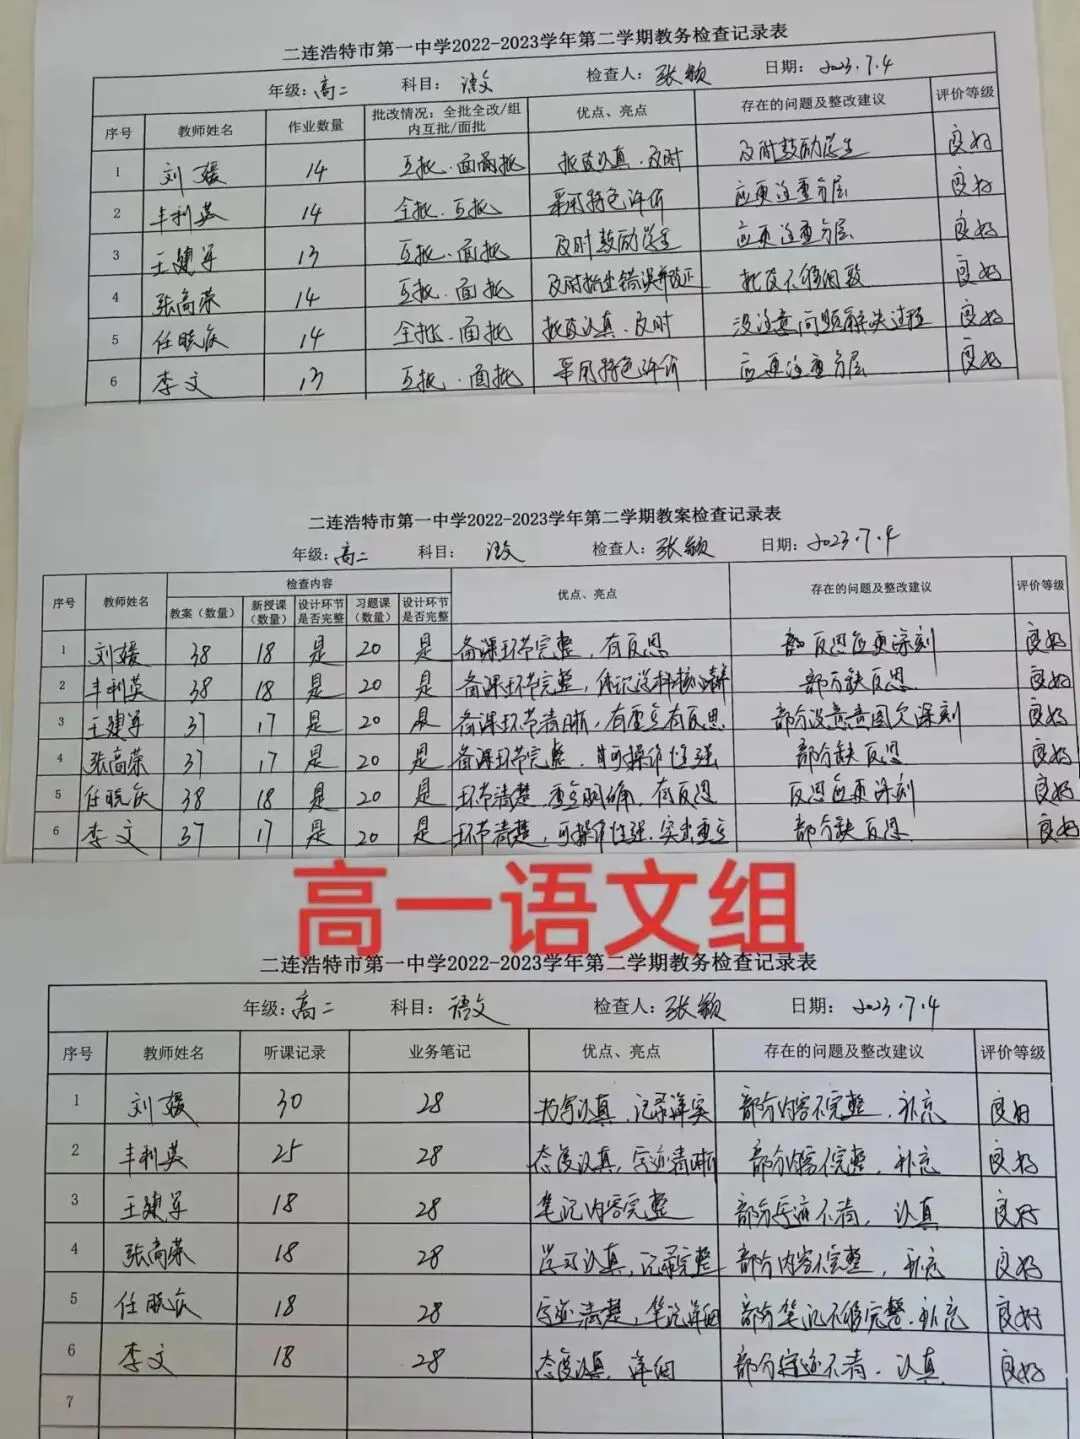 二连浩特市第一中学2022-2023学年第二学期教务检查记录表
年级:高二 科目: 语文 检查人: 张颖 日期: 2023.7.4
序号 教师姓名 作业数量 批改情况: 全批全改/组内互批/面批 优点、亮点 存在的问题及整改建议 评价等级
1 刘媛 14 互批.面批 批改认真.及时 及时鼓励学生 良好
2 丰利英 14 全批.互批 采用特色评价 应更注重分层 良好
3 王建军 13 互批.面批 及时鼓励学生 应更注重分层 良好
4 张高荣 14 互批.面批 及时指出错误并改正 批改不够细致 良好
5 任晓庆 14 全批.面批 批改认真.及时 没注意问题解决过程 良好
6 李文 13 互批.面批 采用特色评价 应更注重分层 良好
二连浩特市第一中学2022-2023学年第二学期教案检查记录表
年级:高二 科目: 语文 检查人: 张颖 日期: 2023.7.4
序号 教师姓名 检查内容 优点、亮点 存在的问题及整改建议 评价等级
教案(数量) 新授课(数量) 设计环节是否完整 习题课(数量) 设计环节是否完整
1 刘媛 38 18 是 20 是 备课环节完整,有反思 反思应更深刻 良好
2 丰利英 38 18 是 20 是 备课环节完整,体现学科核心素养 部分缺反思 良好
3 王建军 37 17 是 20 是 备课环节清晰,有重点有反思 部分设意图欠深刻 良好
4 张高荣 37 17 是 20 是 备课环节完整,可操作性强 部分缺反思 良好
5 任晓庆 38 18 是 20 是 环节清楚.重点明确,有反思 反思应更深刻 良好
6 李文 37 17 是 20 是 环节清楚,可操作性强.突出重点 部分缺反思 良好
高一语文组
二连浩特市第一中学2022-2023学年第二学期教务检查记录表
年级:高二 科目: 语文 检查人:张颖 日期: 2023.7.4
序号 教师姓名 听课记录 业务笔记 优点、亮点 存在的问题及整改建议 评价等级
1 刘媛 30 28 书写认真.记录详实 部分内容不完整.补充 良好
2 丰利英 25 28 态度认真,字迹清晰 部分内容不完整.补充 良好
3 王建军 18 28 笔记内容完整 部分字迹不清,认真 良好
4 张高荣 18 28 学习认真,记录完整 部分内容不完整,补充 良好
5 任晓庆 18 28 字迹清楚,笔记详细 部分笔记不够完整.补充 良好
6 李文 18 28 态度认真.详细 部分字迹不清.认真 良好
7